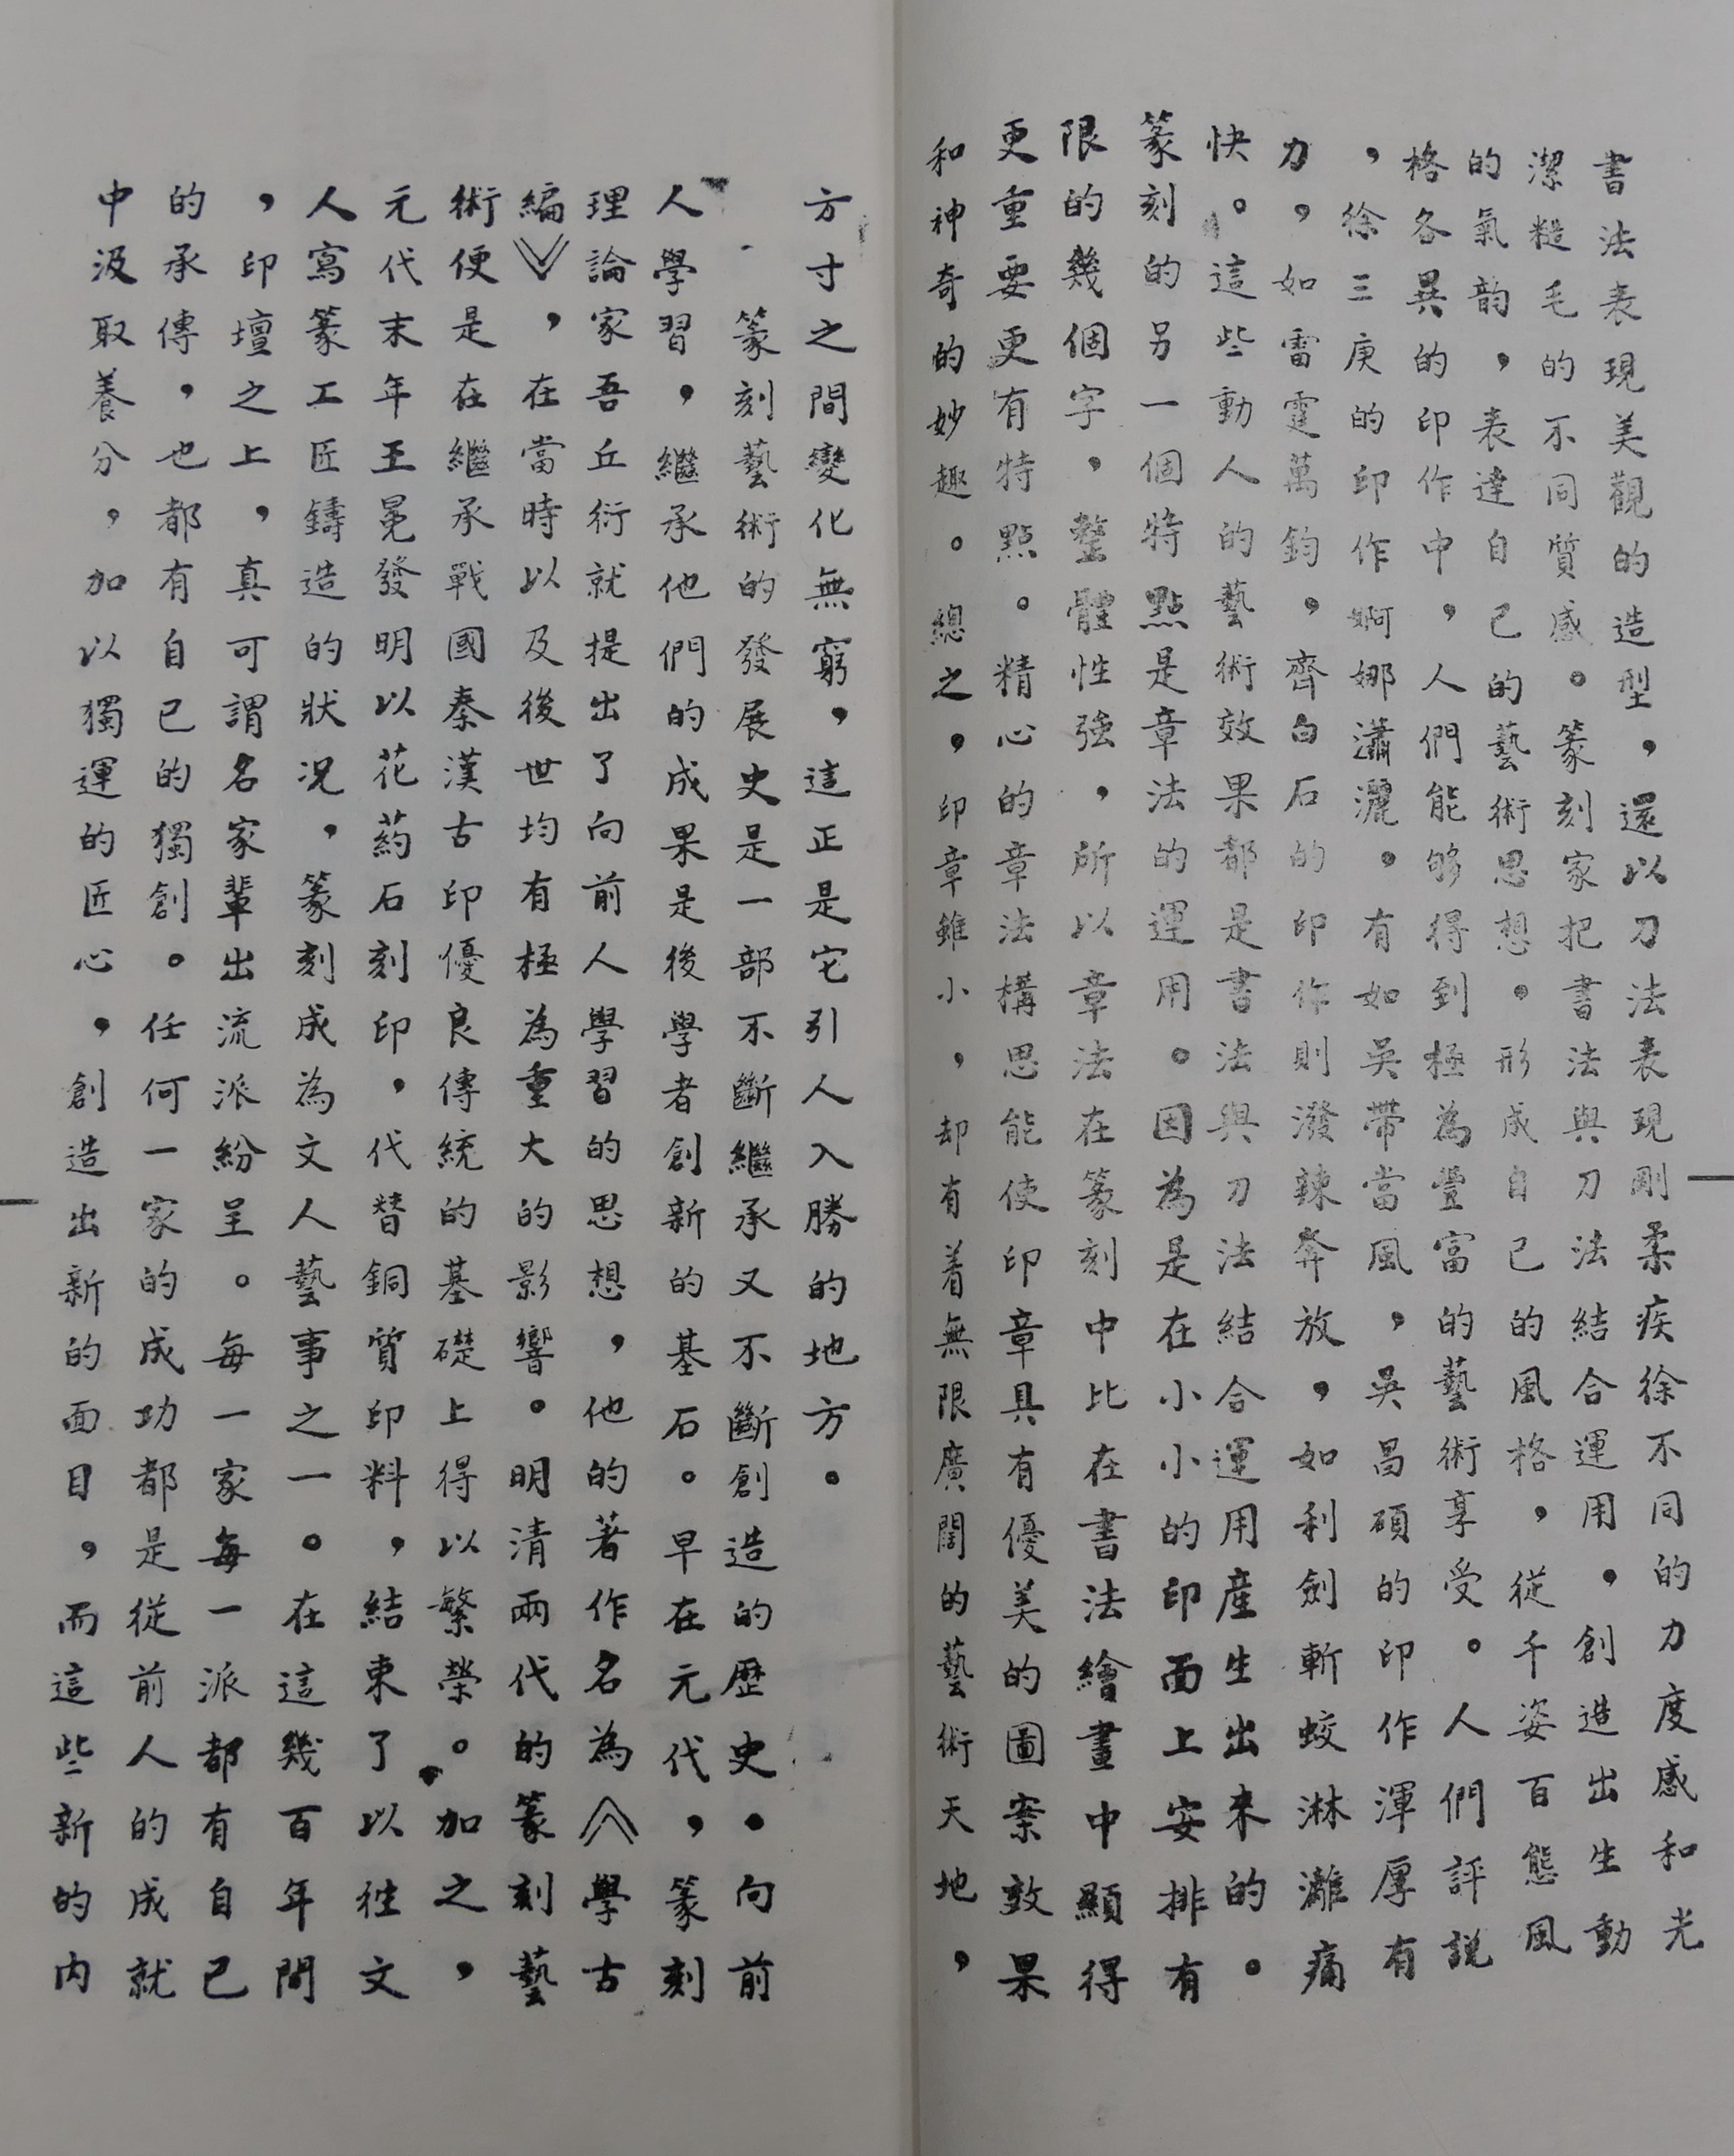 書法表現美觀的造型，還以刀法表現剛柔疾徐不同的力度感和光
潔糙毛的不同質感。篆刻家把書法與刀法結合運用，創造出生動
的氣韵，表達自己的藝術思想，形成自己的風格，從千姿百態風
格各異的印作中，人們能够得到極為豐富的藝術享受。人們評説
，徐三庚的印作婀娜瀟灑，有如吳帶當風，吳昌碩的印作渾厚有
力，如雷霆萬鈞，齊白石的印作則潑辣奔放，如利劍斬蛟淋灕痛
快。這些動人的藝術效果都是書法與刀法結合運用産生出来的。
篆刻的另一個特點是章法的運用。因為是在小小的印面上安排有
限的幾個字，整體性強，所以章法在篆刻中比在書法繪畫中顯得
更重要更有特點。精心的章法構思能使印章具有優美的圖案效果
和神奇的妙趣。總之，印章雖小，却有着無限廣闊的藝術天地，
方寸之間變化無窮，這正是它引人入勝的地方。
篆刻藝術的發展史是一部不斷繼承又不斷創造的歷史。向前
人學習，繼承他們的成果是後學者創新的基石。早在元代，篆刻
理論家吾丘衍就提出了向前人學習的思想，他的著作名為《學古
編》，在當時以及後世均有極為重大的影響。明清兩代的篆刻藝
術便是在繼承戰國秦漢古印優良傳統的基礎上得以繁榮。加之，
元代末年王冕發明以花葯石刻印，代替銅質印料，結束了以往文
人寫篆工匠鑄造的狀况，篆刻成為文人藝事之一。在這幾百年間
，印壇之上，真可謂名家輩出流派紛呈。每一家每一派都有自己
的承傳，也都有自己的獨創。任何一家的成功都是從前人的成就
中汲取養分，加以獨運的匠心，創造出新的面目，而這些新的内